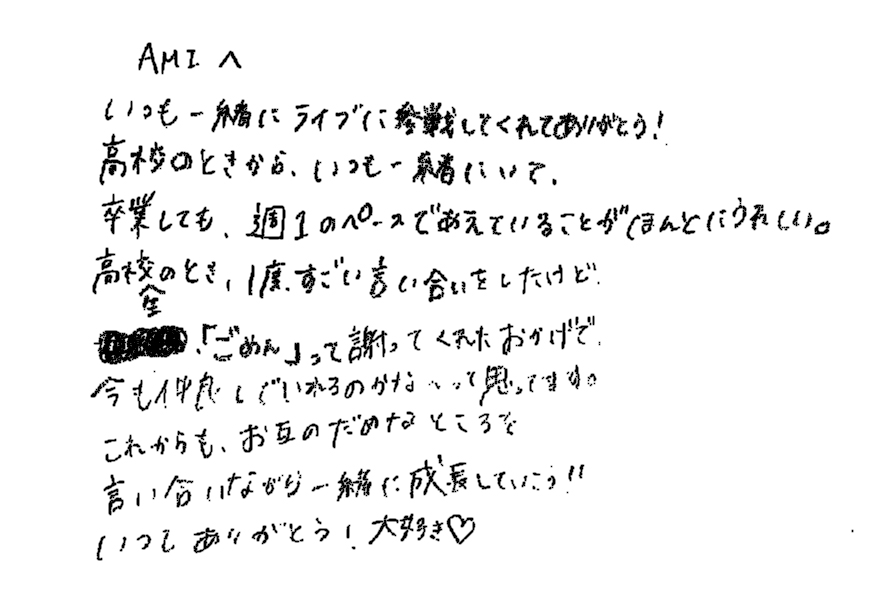 AMI へ
いつも一緒にライブに参戦してくれてありがとう!
高校のときから、いつも一緒にいて、
卒業しても、週1のペースであえていることがほんとにうれしい。
高校のとき、1度、すごい言い合いをしたけど、
全
「ごめん」って謝ってくれたおかげで、
今も仲良しでいれるのかな、って思ってます。
これからも、お互のだめなところを
言い合いながら一緒に成長していこう!!
いつもありがとう! 大好き♡